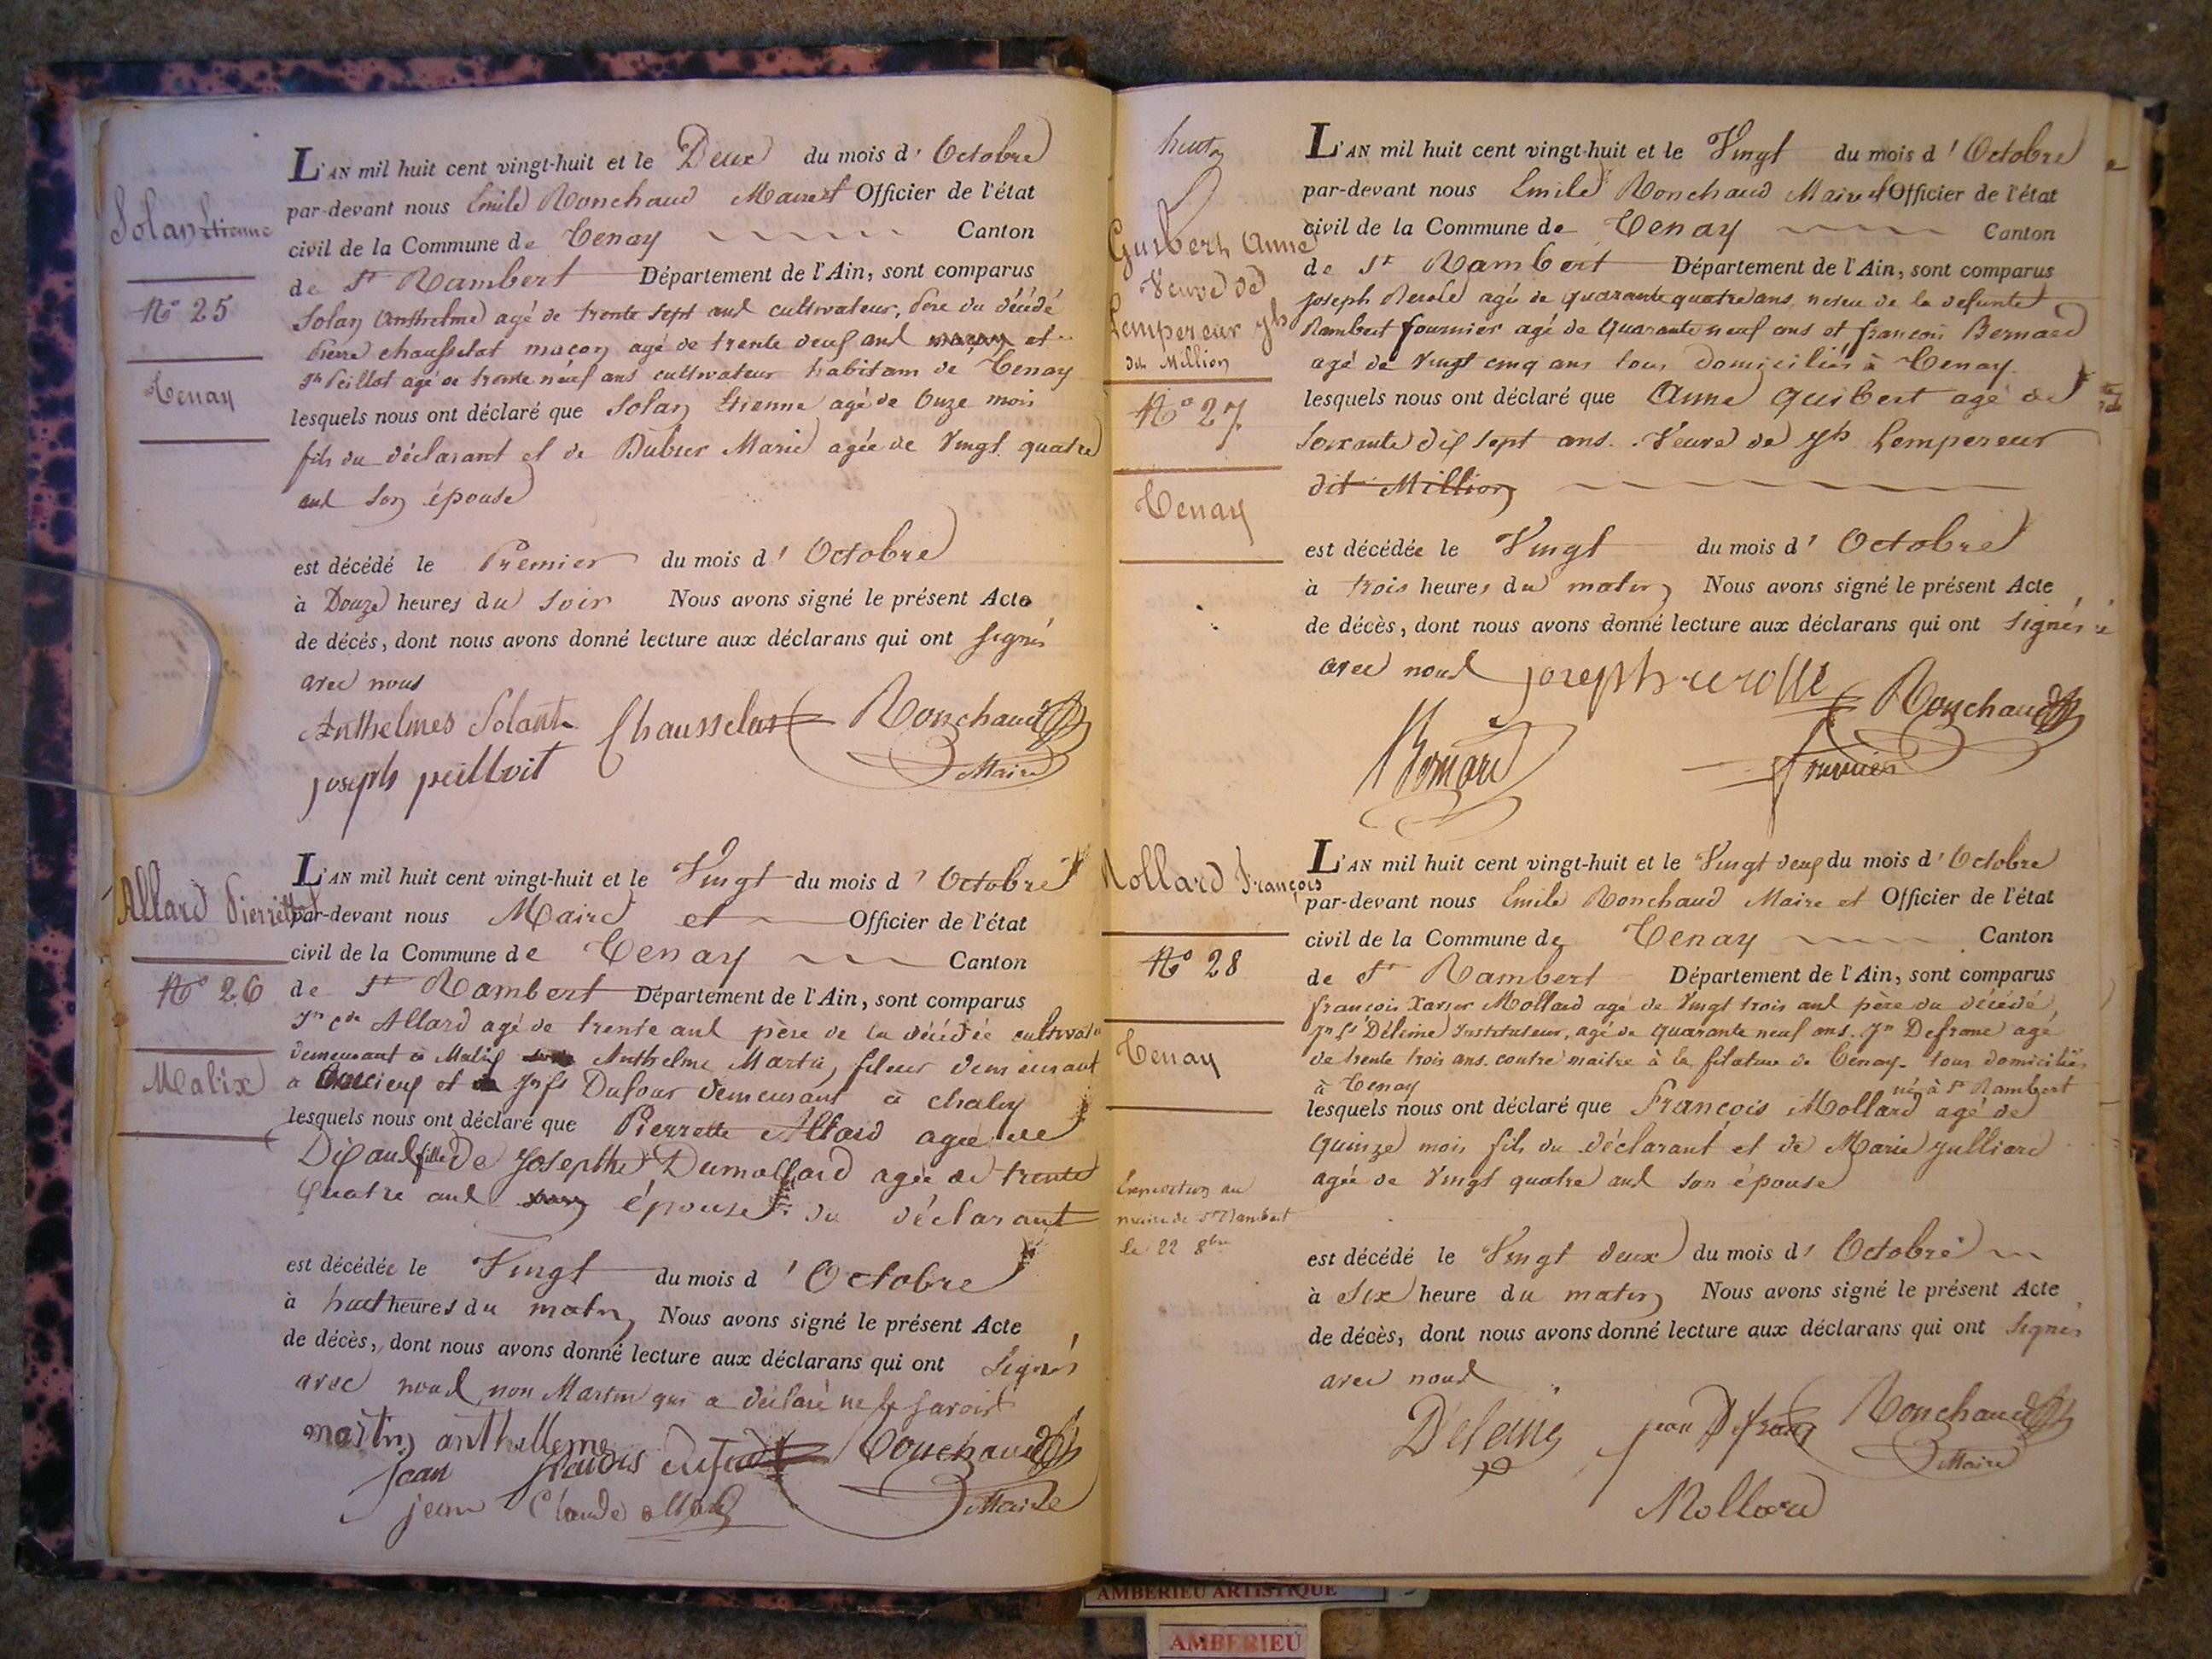 Solan Etienne
N° 25
Tenay
L'AN mil huit cent vingt-huit et le Deux du mois d' Octobre
par-devant nous Emile Ronchaud Maire et Officier de l'état
civil de la Commune de Tenay Canton
de St Rambert Département de l'Ain, sont comparus
Solan Anthelme agé de trente sept ans cultivateur, Père du décédé
Pierre chausselat maçon agé de trente deux ans et
Jh Peillot agé de trente neuf ans cultivateur habitans de Tenay
lesquels nous ont déclaré que Solan Etienne agé de Onze mois
fils du déclarant et de Dubier Marie agée de Vingt quatre
ans son épouse
est décédé le Premier du mois d' Octobre
à Douze heures du soir Nous avons signé le présent Acte
de décés, dont nous avons donné lecture aux déclarans qui ont signés
avec nous
Anthelmes Solant Chausselat Ronchaud
joseph peilloit Maire
Allard Pierrette
N° 26
Malix
L'AN mil huit cent vingt-huit et le Vingt du mois d' Octobre
par-devant nous Maire et Officier de l'état
civil de la Commune de Tenay Canton
de St Rambert Département de l'Ain, sont comparus
Jn Cde Allard agé de trente ans père de la décédée cultivatr
demeurant à Malix Anthelme Martin, fileur demeurant
a et Jn fs Dufour demeurant à chaley
lesquels nous ont déclaré que Pierrette Allard agée de
Dix ans fille De Josephte Dumollard agée de trente
quatre ans épouse du déclarant
est décédée le Vingt du mois d' Octobre
à huit heures du matin Nous avons signé le présent Acte
de décès, dont nous avons donné lecture aux déclarans qui ont Signés
avec nous non Martin qui a déclaré ne le savoir
martin anthelleme Ronchaud
jean Maire
jean Claude allard
Guibert Anne
Veuve de
Lempereur jh
dit Million
N° 27
Tenay
L'AN mil huit cent vingt-huit et le Vingt du mois d' Octobre
par-devant nous Emile Ronchaud Maire et Officier de l'état
civil de la Commune de Tenay Canton
de St Rambert Département de l'Ain, sont comparus
joseph agé de quarante quatre ans neveu de la defunte
Rambert fournier agé de Quarante neuf ans et françois Bernard
agé de Vingt cinq ans tous domiciliés à Tenay
lesquels nous ont déclaré que Anne Guibert agé de
soixante dix sept ans. Veuve de jh Lempereur
dit Million
est décédée le Vingt du mois d' Octobre
à trois heures du matin Nous avons signé le présent Acte
de décès, dont nous avons donné lecture aux déclarans qui ont signés
avec nous joseph Ronchaud
Bernard fournier
Mollard François
N° 28
Tenay
Expédition au
maire de St Rambert
le 22 8bre
L'AN mil huit cent vingt-huit et le Vingt deux du mois d' Octobre
par-devant nous Emile Ronchaud Maire et Officier de l'état
civil de la Commune de Tenay Canton
de St Rambert Département de l'Ain, sont comparus
françois Xavier Mollard agé de Vingt trois ans père du décédé
Jn fs Délème Instituteur, agé de quarante neuf ans. Jn Defrane agé
de trente trois ans. contre maitre à la filature de Tenay. tous domiciliés
à Tenay né à St Rambert
lesquels nous ont déclaré que François Mollard agé de
quinze mois fils du déclarant et de Marie Julliard
agée de Vingt quatre ans son épouse
est décédé le Vingt deux du mois d' Octobre
à Six heure du matin Nous avons signé le présent Acte
de décès, dont nous avons donné lecture aux déclarans qui ont signés
avec nous
jean Ronchaud
Maire
Mollard
AMBERIEU ARTISTIQUE
AMBERIEU